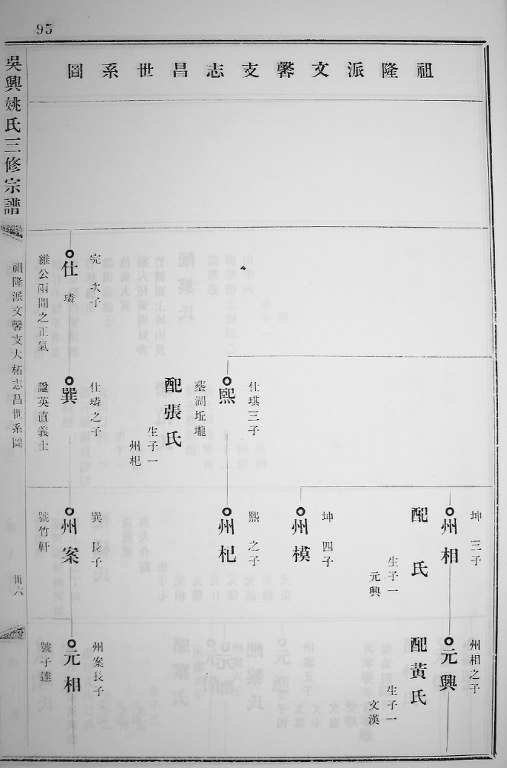 95
祖隆派文馨支志昌世系圖
吳興姚氏三修宗譜
祖隆派文馨支大柘志昌世系圖
卌六
仕璘
完次子
維公兩間之正氣
熙
仕琪三子
墓澗坵壠
配張氏
生子一
州杞
巽
仕璘之子
諡英直義士
州相
坤三子
配 氏
生子一
元興
州模
坤四子
州杞
熙之子
州案
巽長子
號竹軒
元興
州相之子
配黃氏
生子一
文漢
元相
州案長子
號子達